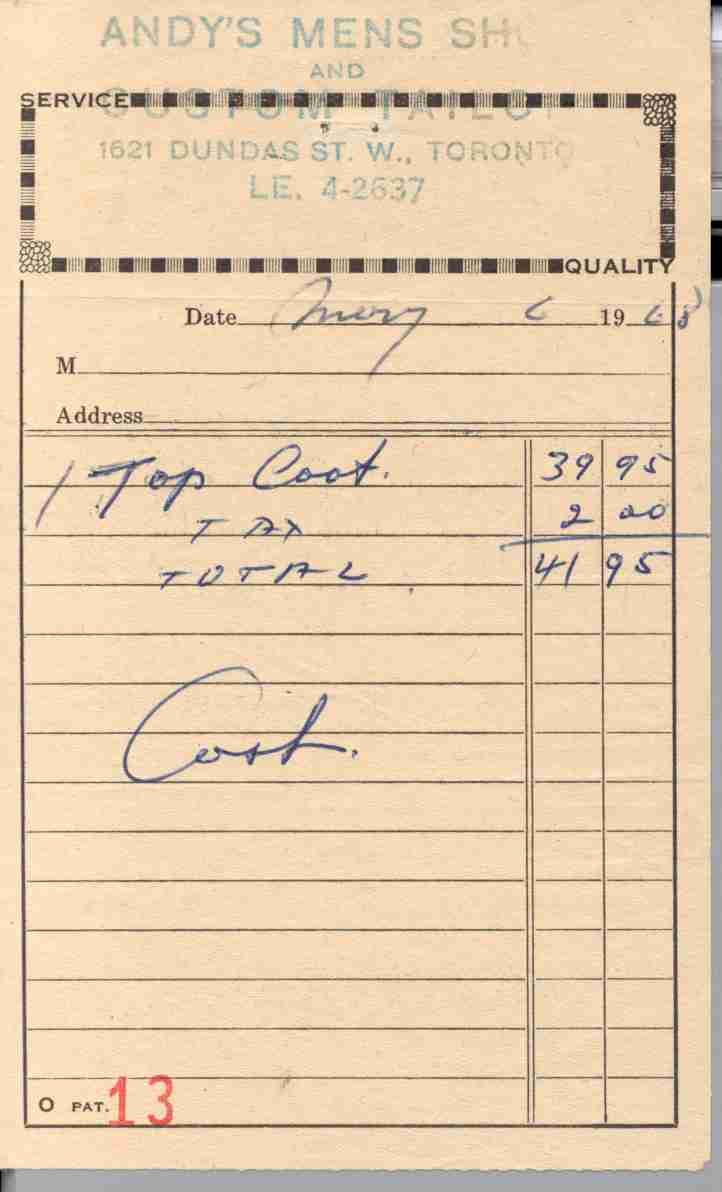 ANDY'S MENS SH
AND
SERVICE
CUSTOM TAILO
1621 DUNDAS ST. W., TORONTO
LE. 4-2637
QUALITY
Date 6 19 68
M
Address
1 Top Coat. 39 95
TAX 2 00
TOTAL. 41 95
Cash.
O PAT. 13